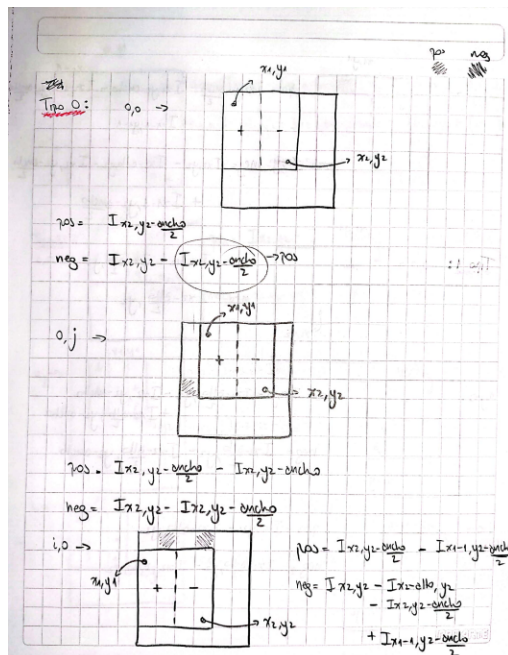 pos neg
Tipo 0: 0,0 → x1,y1
+ -
x2,y2
pos = Ix2,y2-ancho/2
neg = Ix2,y2 - Ix2,y2-ancho/2 → pos
Tipo 1:
x1,y1
0,j →
+ -
x2,y2
pos = Ix2,y2-ancho/2 - Ix2,y2-ancho
neg = Ix2,y2 - Ix2,y2-ancho/2
i,0 →
x1,y1
+ -
x2,y2
pos = Ix2,y2-ancho/2 - Ix1-1,y2-ancho/2
neg = Ix2,y2 - Ix2-alto,y2
- Ix2,y2-ancho/2
+ Ix1-1,y2-ancho/2